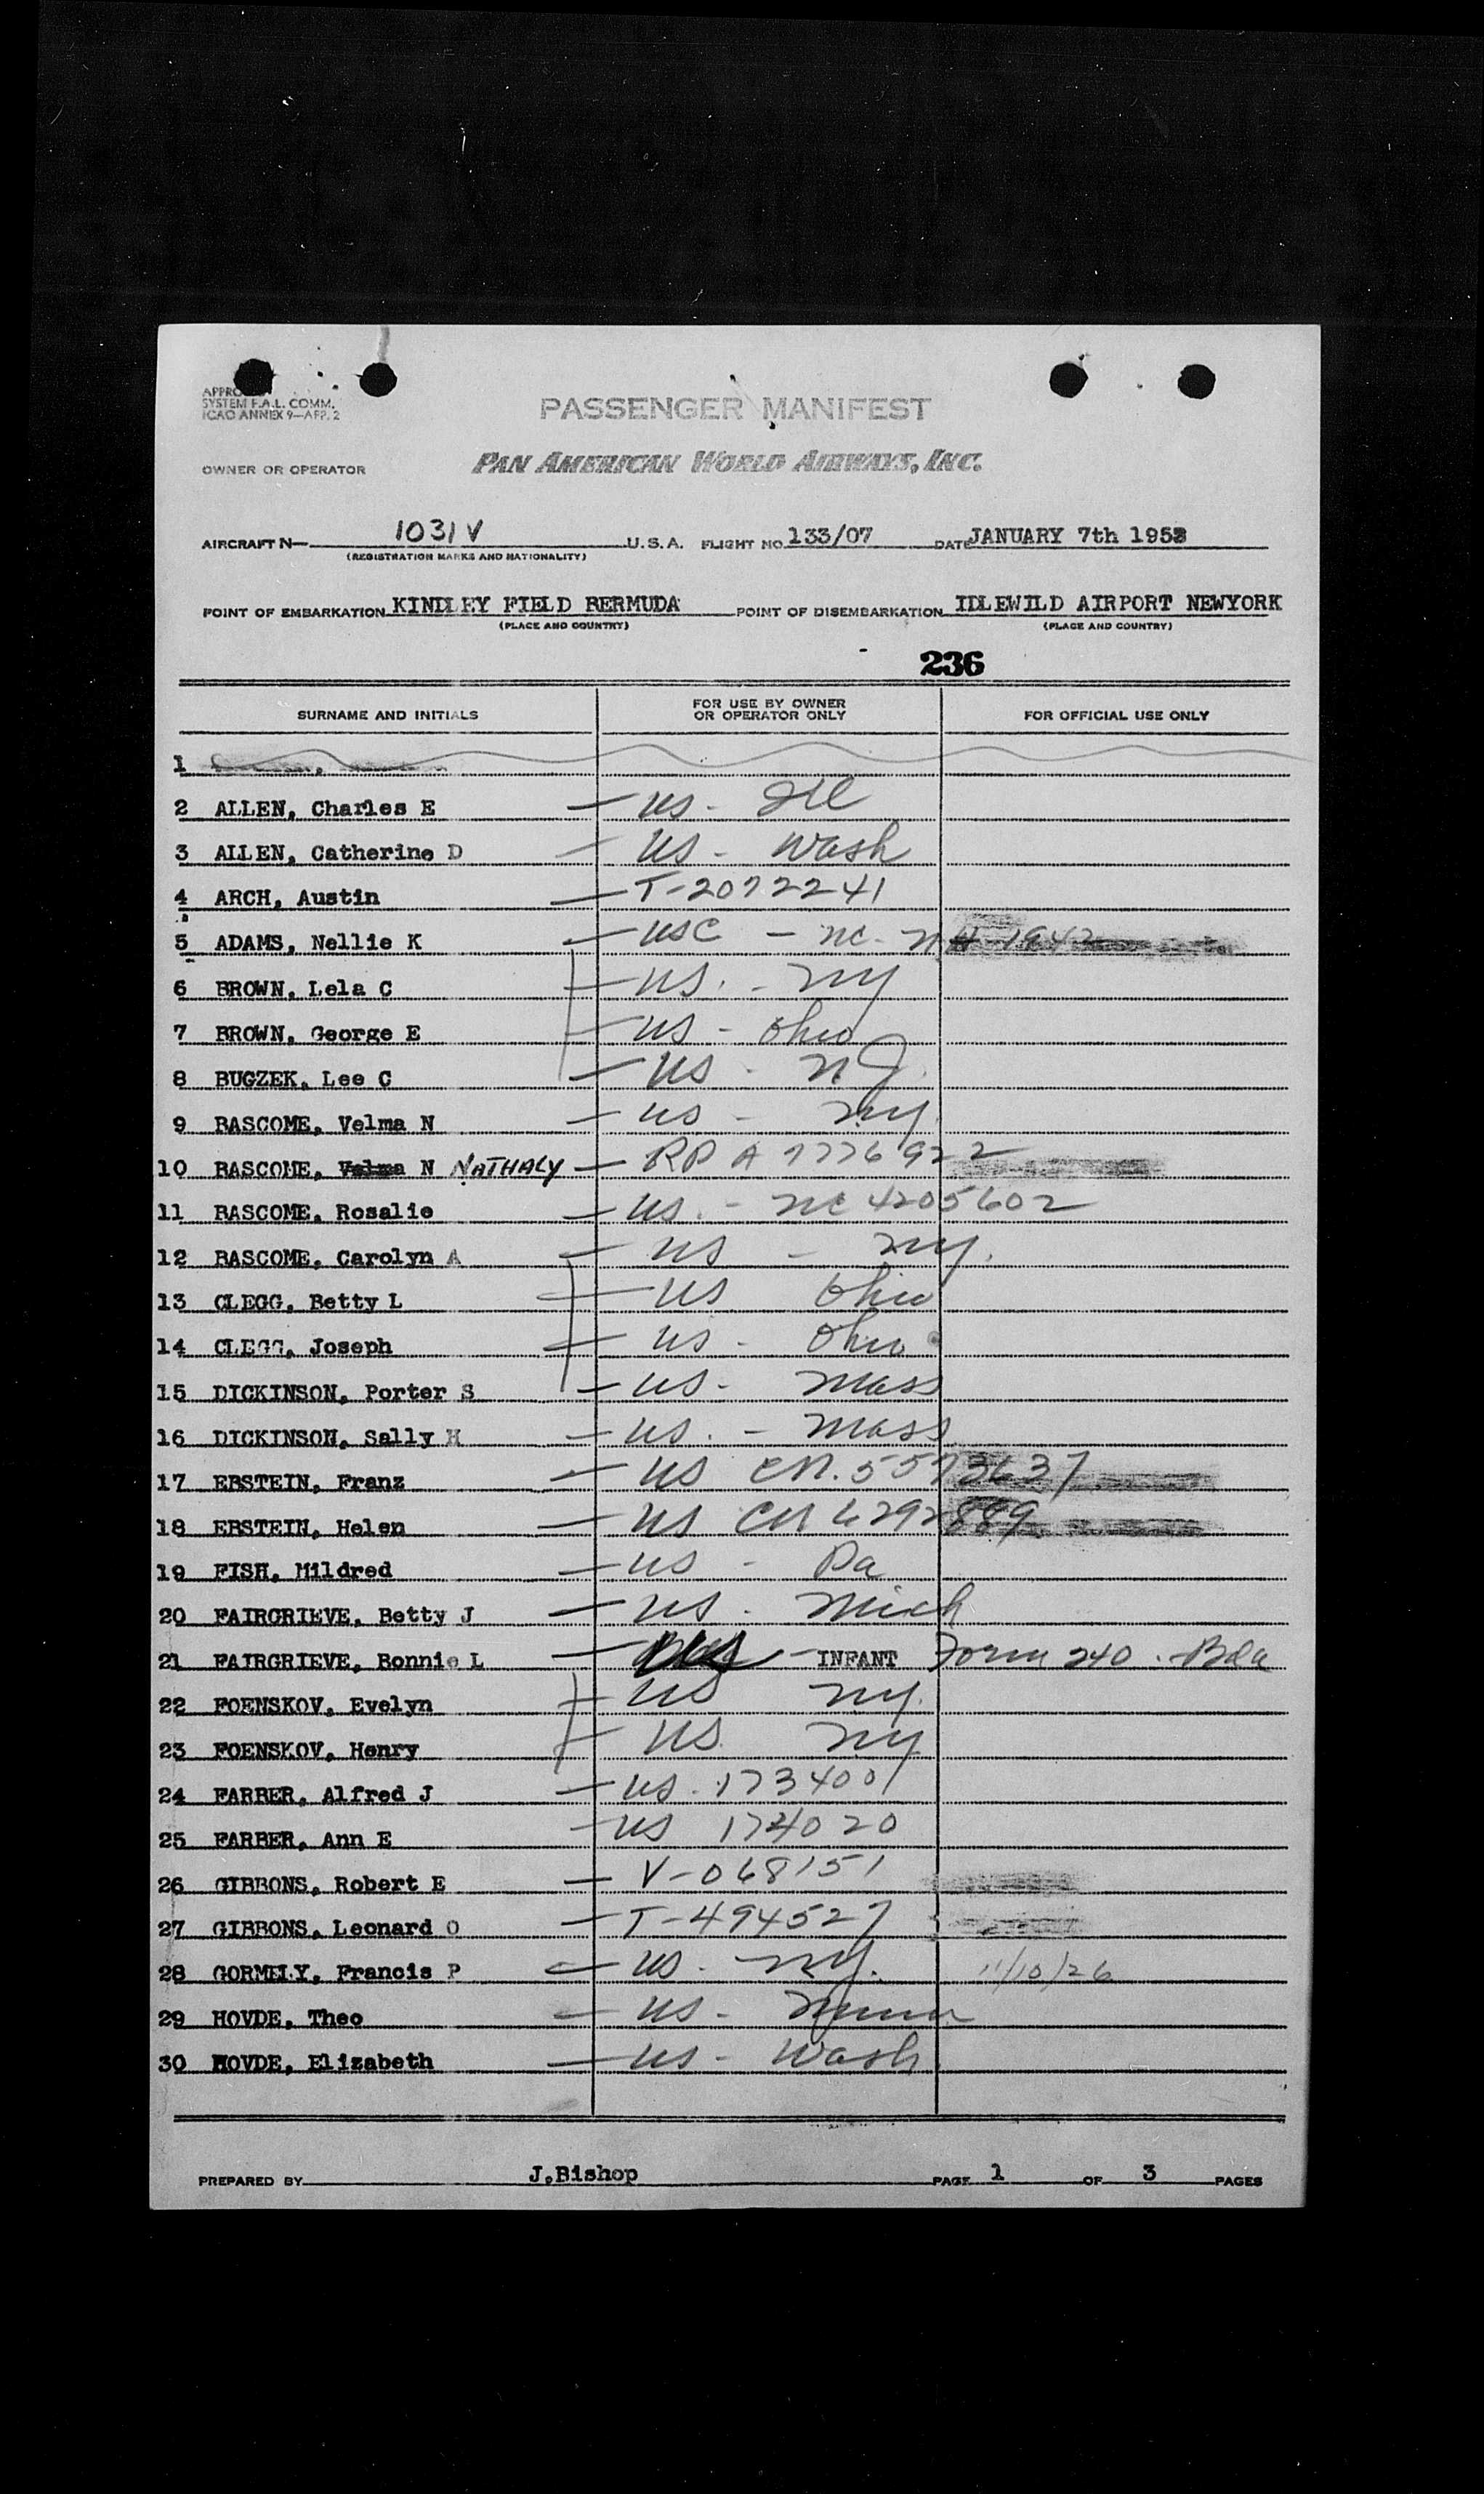 SYSTEM F.A.L. COMM.
ICAO ANNEX 9—APP. 2
PASSENGER MANIFEST
OWNER OR OPERATOR PAN AMERICAN WORLD AIRWAYS, INC.
AIRCRAFT N— 1031V U.S.A. FLIGHT NO. 133/07 DATE JANUARY 7th 1953
(REGISTRATION MARKS AND NATIONALITY)
POINT OF EMBARKATION KINDLEY FIELD BERMUDA POINT OF DISEMBARKATION IDLEWILD AIRPORT NEWYORK
(PLACE AND COUNTRY) (PLACE AND COUNTRY)
236
SURNAME AND INITIALS FOR USE BY OWNER OR OPERATOR ONLY FOR OFFICIAL USE ONLY
1
2 ALLEN, Charles E — US - Ill
3 ALLEN, Catherine D — US - Wash
4 ARCH, Austin — T-2072241
5 ADAMS, Nellie K — USC - NC - NH 1942
6 BROWN, Lela C — US. - NY
7 BROWN, George E — US - Ohio
8 BUGZEK, Lee C — US - NJ.
9 BASCOME, Velma N — US - NY.
10 BASCOME, Velma N NATHALY — RP A 7776922
11 BASCOME, Rosalie — US. - NC 4205602
12 BASCOME, Carolyn A — US - NY.
13 CLEGG, Betty L — US Ohio
14 CLEGG, Joseph — US - Ohio
15 DICKINSON, Porter S — US - Mass
16 DICKINSON, Sally H — US. - Mass
17 EBSTEIN, Franz — US CN. 5573637
18 EBSTEIN, Helen — US CN 6292889
19 FISH, Mildred — US - Pa
20 FAIRGRIEVE, Betty J — US. Mich
21 FAIRGRIEVE, Bonnie L — US - INFANT Form 240 - Bda
22 FOENSKOV, Evelyn — US NY.
23 FOENSKOV, Henry — US NY
24 FARBER, Alfred J — US. 173400
25 FARBER, Ann E — US 174020
26 GIBBONS, Robert E — V-068151
27 GIBBONS, Leonard O — T-494527
28 GORMELY, Francis P — US. NY. 11/10/26
29 HOVDE, Theo — US - Minn
30 HOVDE, Elizabeth — US - Wash
PREPARED BY J.Bishop PAGE 1 OF 3 PAGES